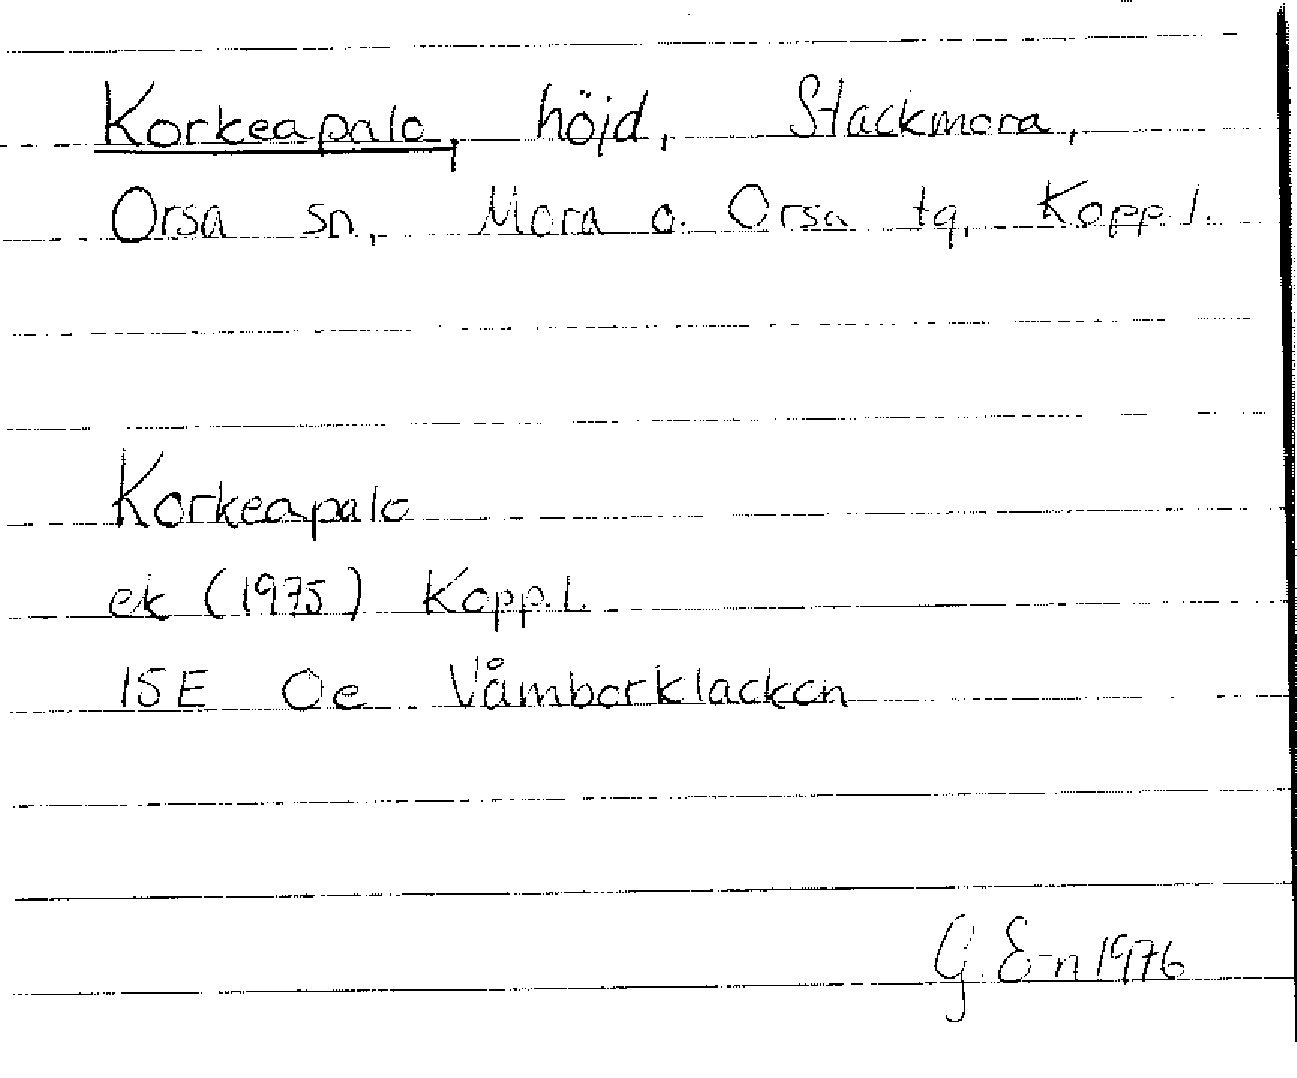 Korkeapalo, höjd, Stackmora,
Orsa sn, Mora o. Orsa tg, Kopp. l.
Korkeapalo
ek (1975) Kopp. l.
15E Oe Våmborklacken
G. E-n 1976